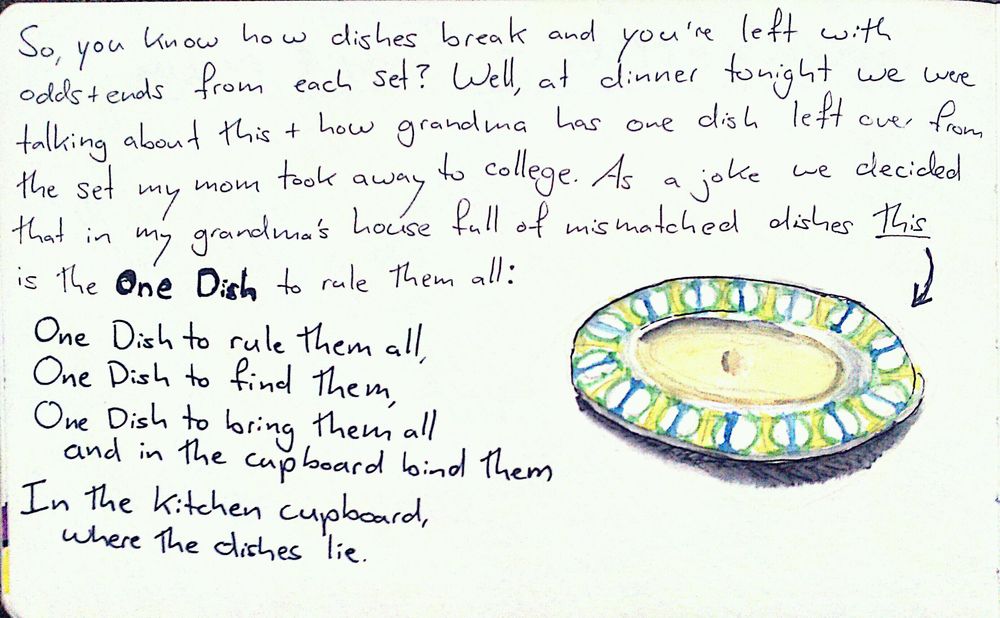 So, you know how dishes break and you're left with
odds + ends from each set? Well, at dinner tonight we were
talking about this + how grandma has one dish left over from
the set my mom took away to college. As a joke we decided
that in my grandma's house full of mismatched dishes this
is the One Dish to rule them all:
One Dish to rule them all,
One Dish to find them,
One Dish to bring them all
and in the cupboard bind them
In the kitchen cupboard,
where the dishes lie.